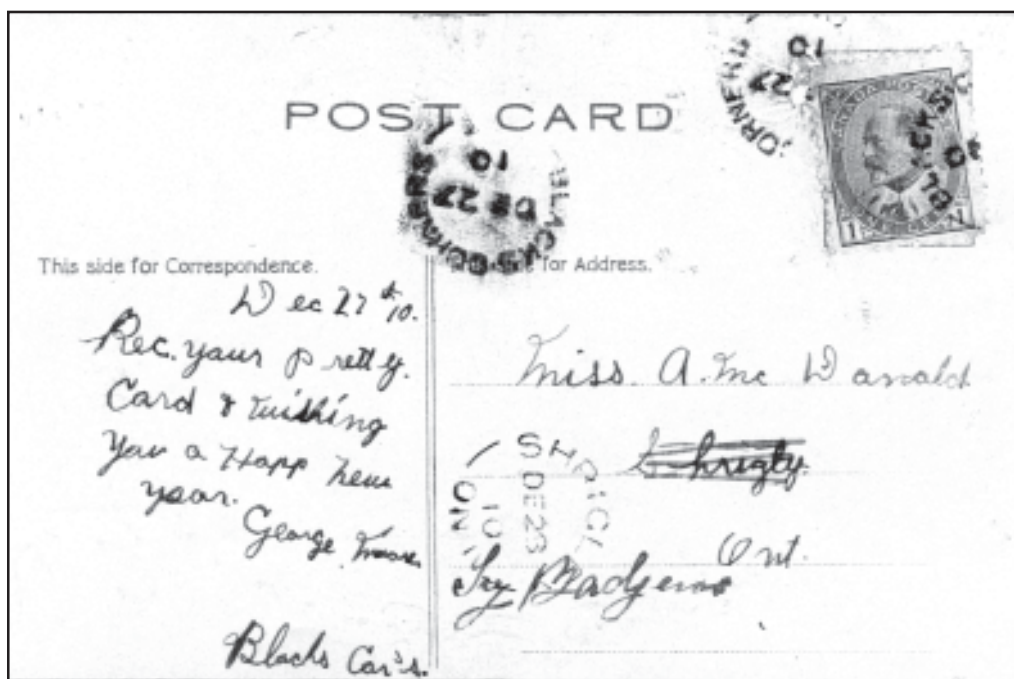 POST CARD
BLACKS CORNERS
DE 27
10
CORNERS
27
10
BLACKS
1
This side for Correspondence.
for Address.
Dec 27th 10.
Rec. your pretty.
Card & Wishing
You a Happ New
year.
George Moore
Blacks Cor's.
Miss. A. Mc Donald
Shrigly.
Ont.
Try Badjeros
DE 28
10
ONT